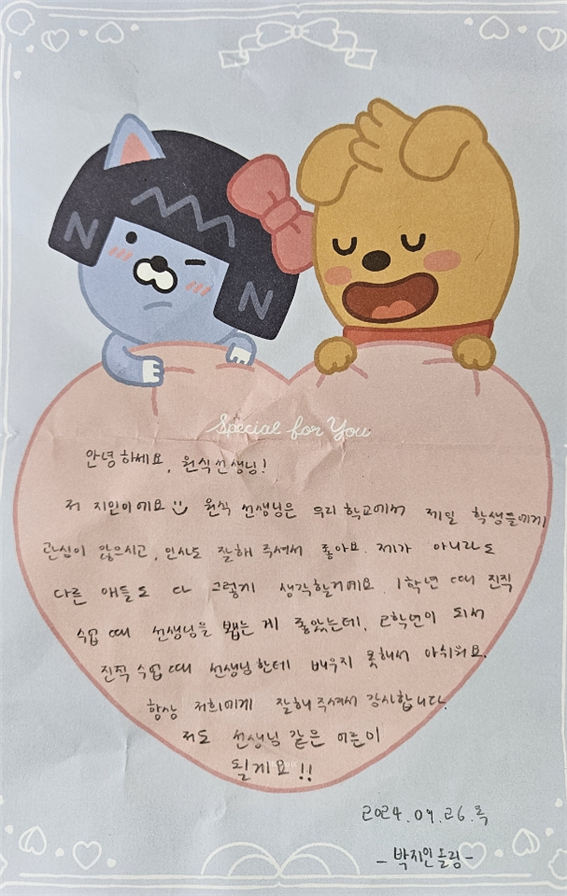 N
N
Special for You
안녕하세요, 원식선생님!
저 지인이에요 원식 선생님은 우리 학교에서 제일 학생들에게
관심이 많으시고, 인사도 잘해 주셔서 좋아요. 제가 아니라도
다른 애들도 다 그렇게 생각할거예요. 1학년 때 진직
수업 때 선생님을 뵙는 게 좋았는데, 2학년이 되서
진직 수업 때 선생님한테 배우지 못해서 아쉬워요.
항상 저희에게 잘해주셔서 감사합니다.
저도 선생님 같은 어른이
될게요!!
2024.09.26.목
- 박지인 드림 -